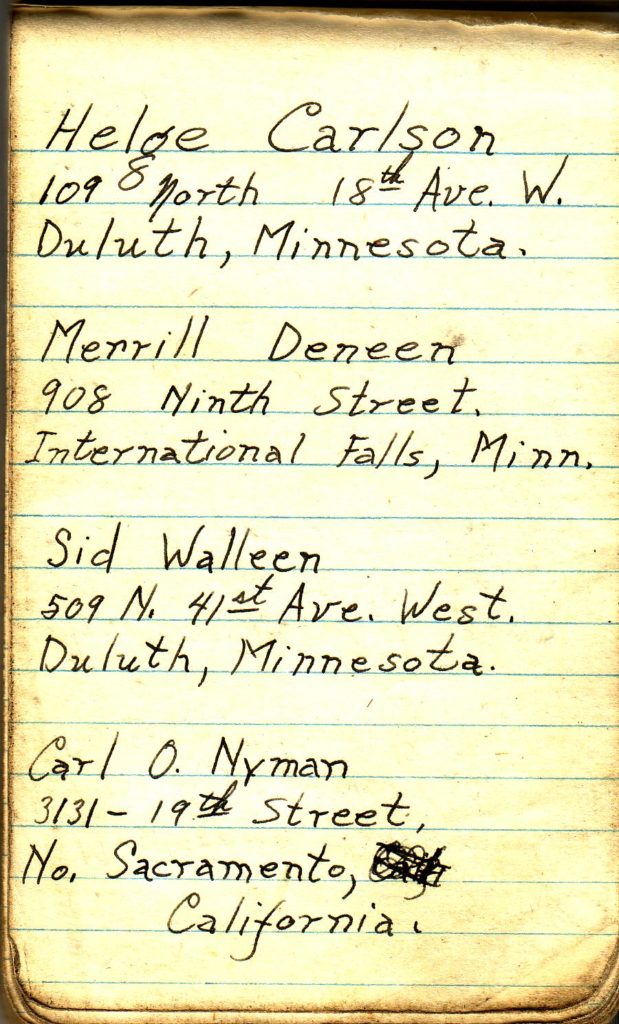 Helge Carlson
109 8 North 18th Ave. W.
Duluth, Minnesota.
Merrill Deneen
908 Ninth Street.
International Falls, Minn.
Sid Walleen
509 N. 41st Ave. West.
Duluth, Minnesota.
Carl O. Nyman
3131- 19th Street,
No. Sacramento,
California.